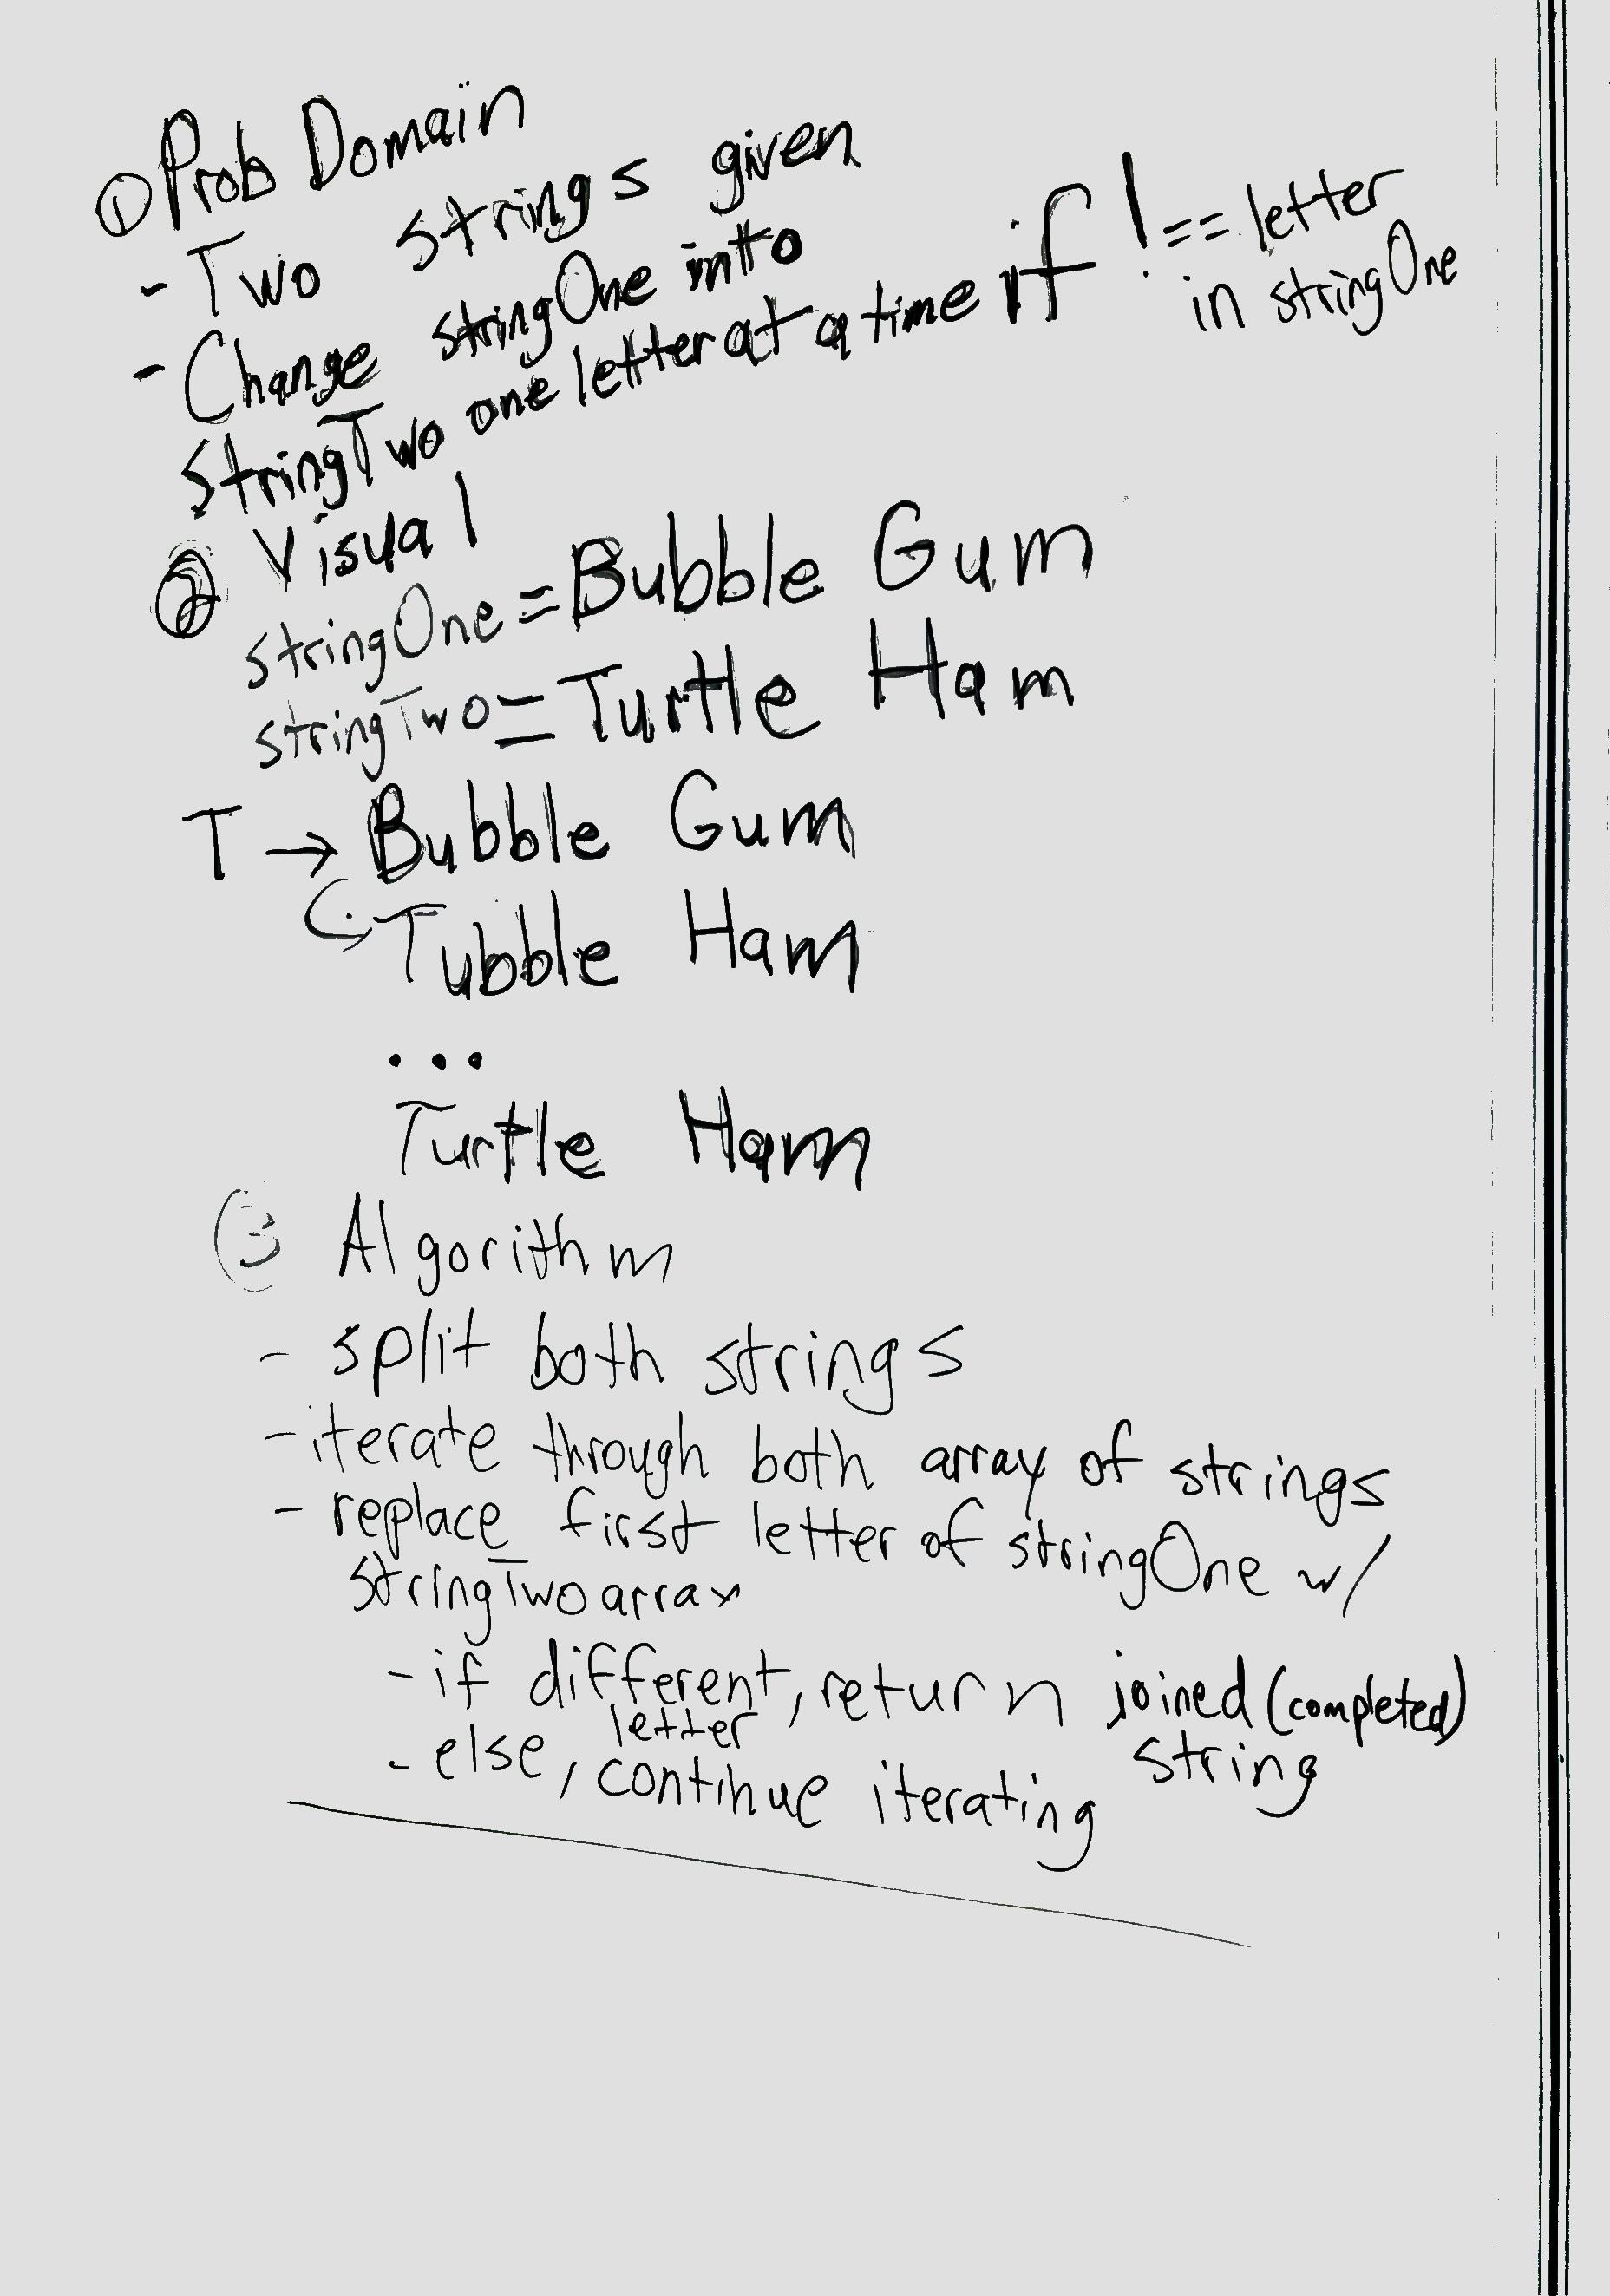 ① Prob Domain
- Two strings given
- Change stringOne into
StringTwo one letter at a time if !== letter
in stringOne
② Visual
stringOne = Bubble Gum
stringTwo = Turtle Ham
T → Bubble Gum
Tubble Ham
...
Turtle Ham
③ Algorithm
- split both strings
- iterate through both array of strings
- replace first letter of stringOne w/
stringTwo array
- if different, return joined (completed)
string
- else, letter continue iterating